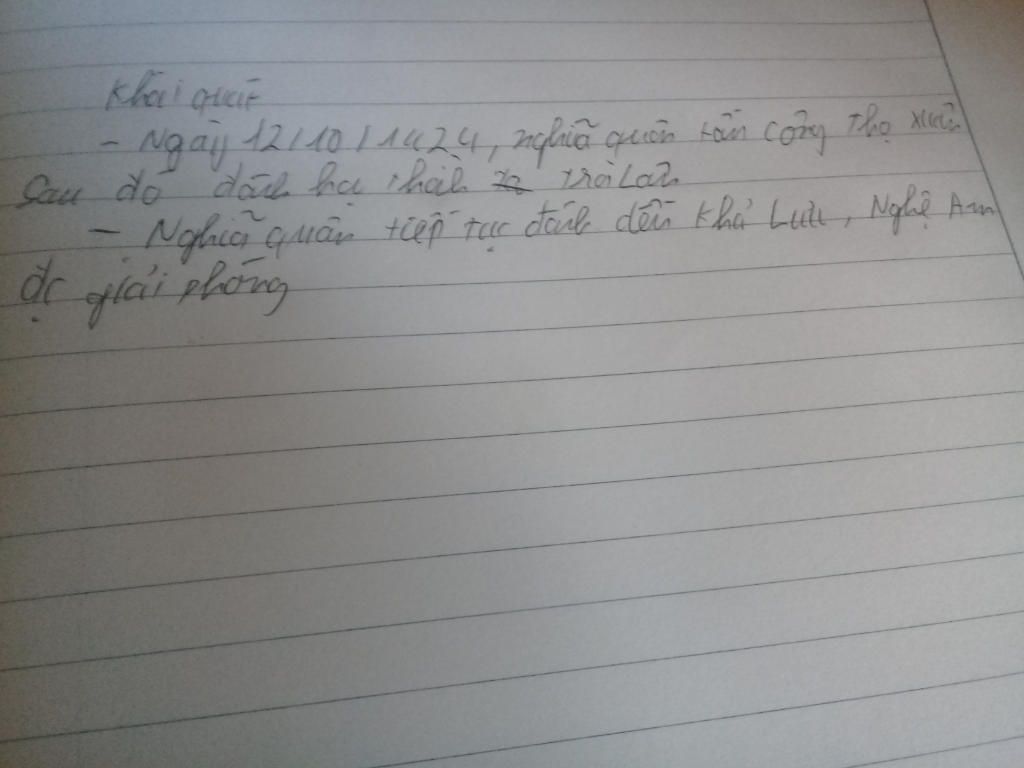 Khái quát
- Ngày 12/10/1424, nghĩa quân tấn công Thọ Xuân
Sau đó đánh hạ thành Trà Lân
- Nghĩa quân tiếp tục đánh đến Khả Lưu, Nghệ An
đc giải phóng